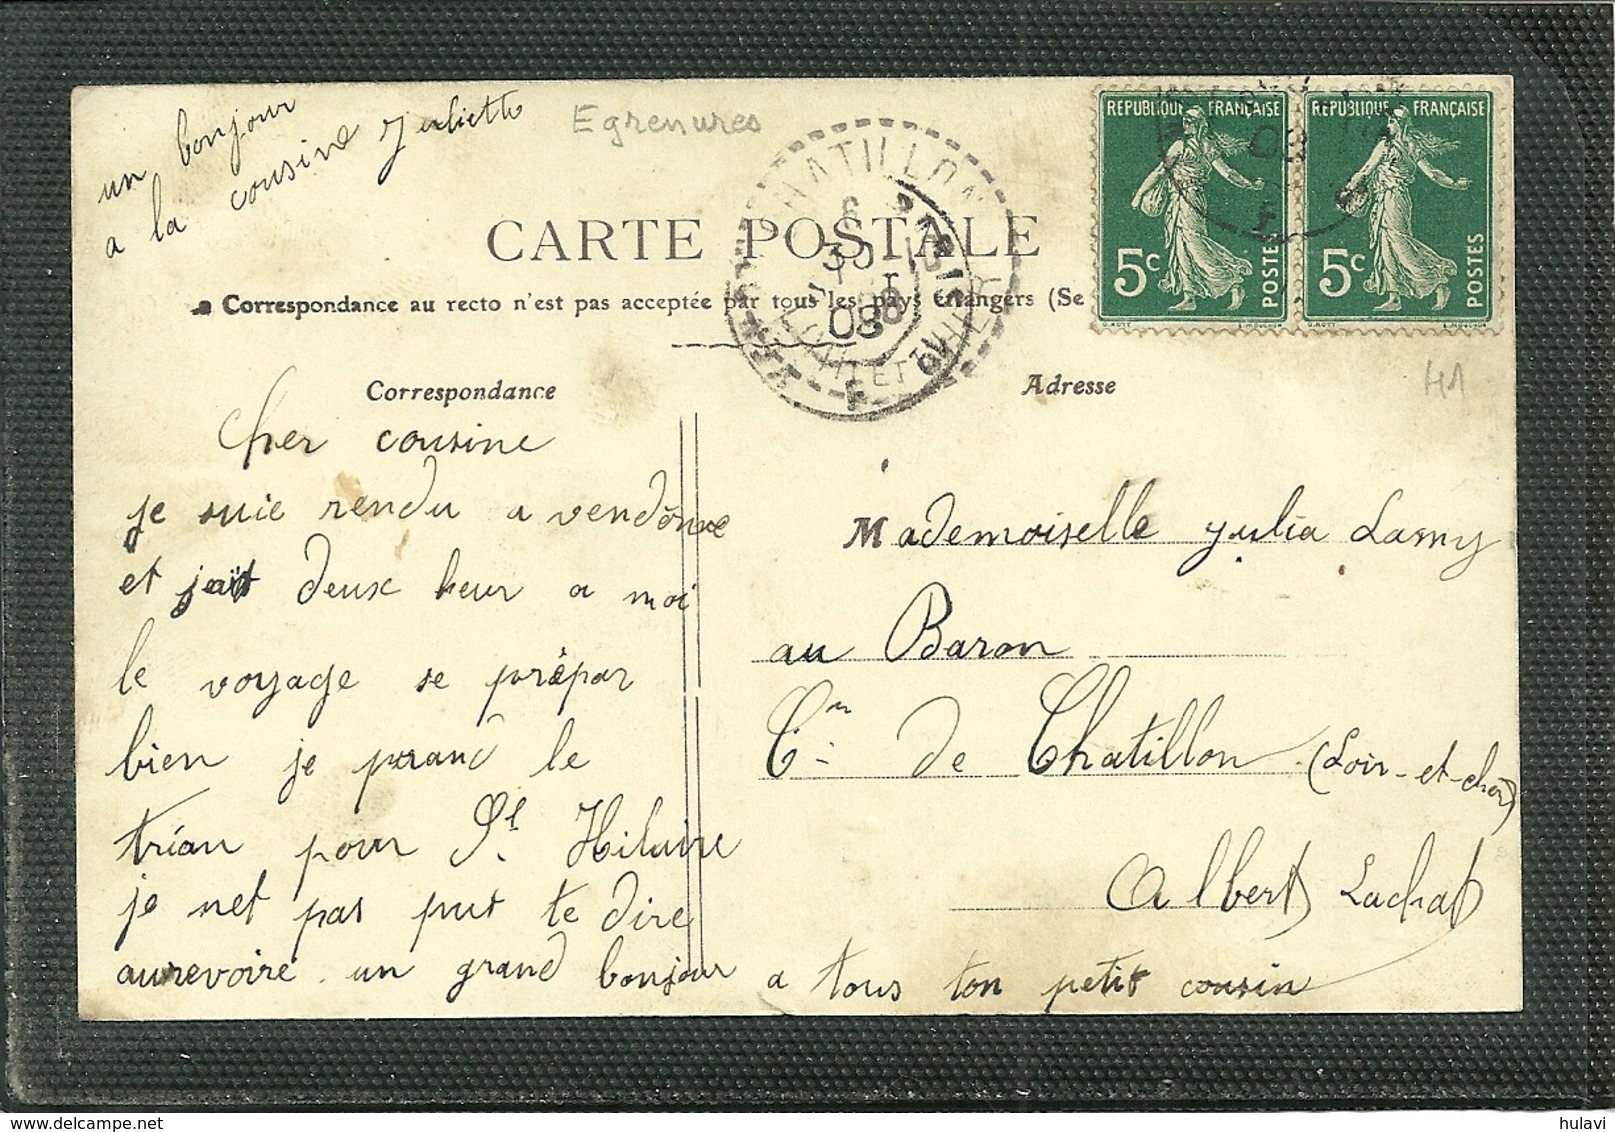 un bonjour
a la cousine Juliette
Egrenures
CARTE POSTALE
Correspondance au recto n'est pas acceptée par tous les pays étrangers (Se
REPUBLIQUE FRANÇAISE
5c
POSTES
O.ROTY
E.MOUCHON
REPUBLIQUE FRANÇAISE
5c
POSTES
O.ROTY
E.MOUCHON
CHATILLON
30
08
LOIR ET CHER
Correspondance
Adresse
H1
cher cousine
je suie rendu a vendôme
et jait deux heur a moi
le voyage se prépar
bien je prand le
trian pour St. Hilaire
je net pas put te dire
aurevoire un grand bonjour a tous ton petit cousin
Mademoiselle Julia Lamy
au Baron
Cne de Chatillon (Loir-et-cher)
Albert Lachat
hulavi